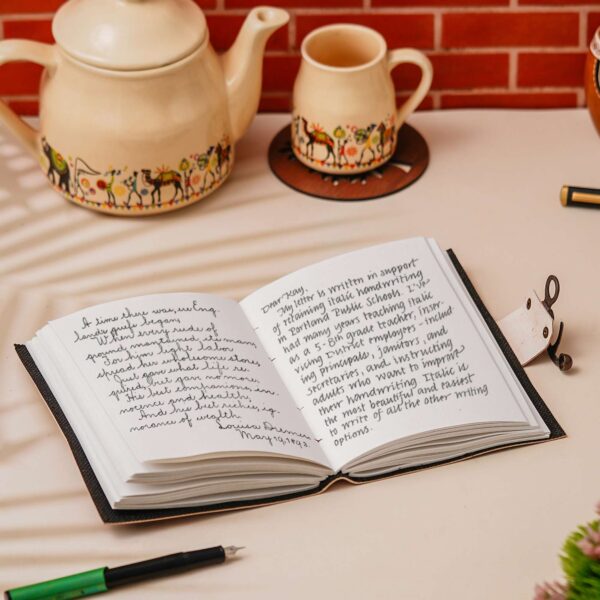 A time there was, ere Eng-
lands griefs began,
When every rude of
ground maintained its man,
For him light labor
spread her wholesome store,
Just gave what life re-
quired, but gave no more,
His best companions, inn-
nocence and health,
And his best riches, ig-
norance of wealth.
Louisa
May 19, 1893.
Dear Kay,
My letter is written in support
of retaining italic handwriting
in Portland Public Schools. I've
had many years teaching italic
as a 5-8th grade teacher, inser-
vicing District employees - includ
ing principals, janitors, and
secretaries, and instructing
adults who want to improve
their handwriting. Italic is
the most beautiful and easiest
to write of all the other writing
options.